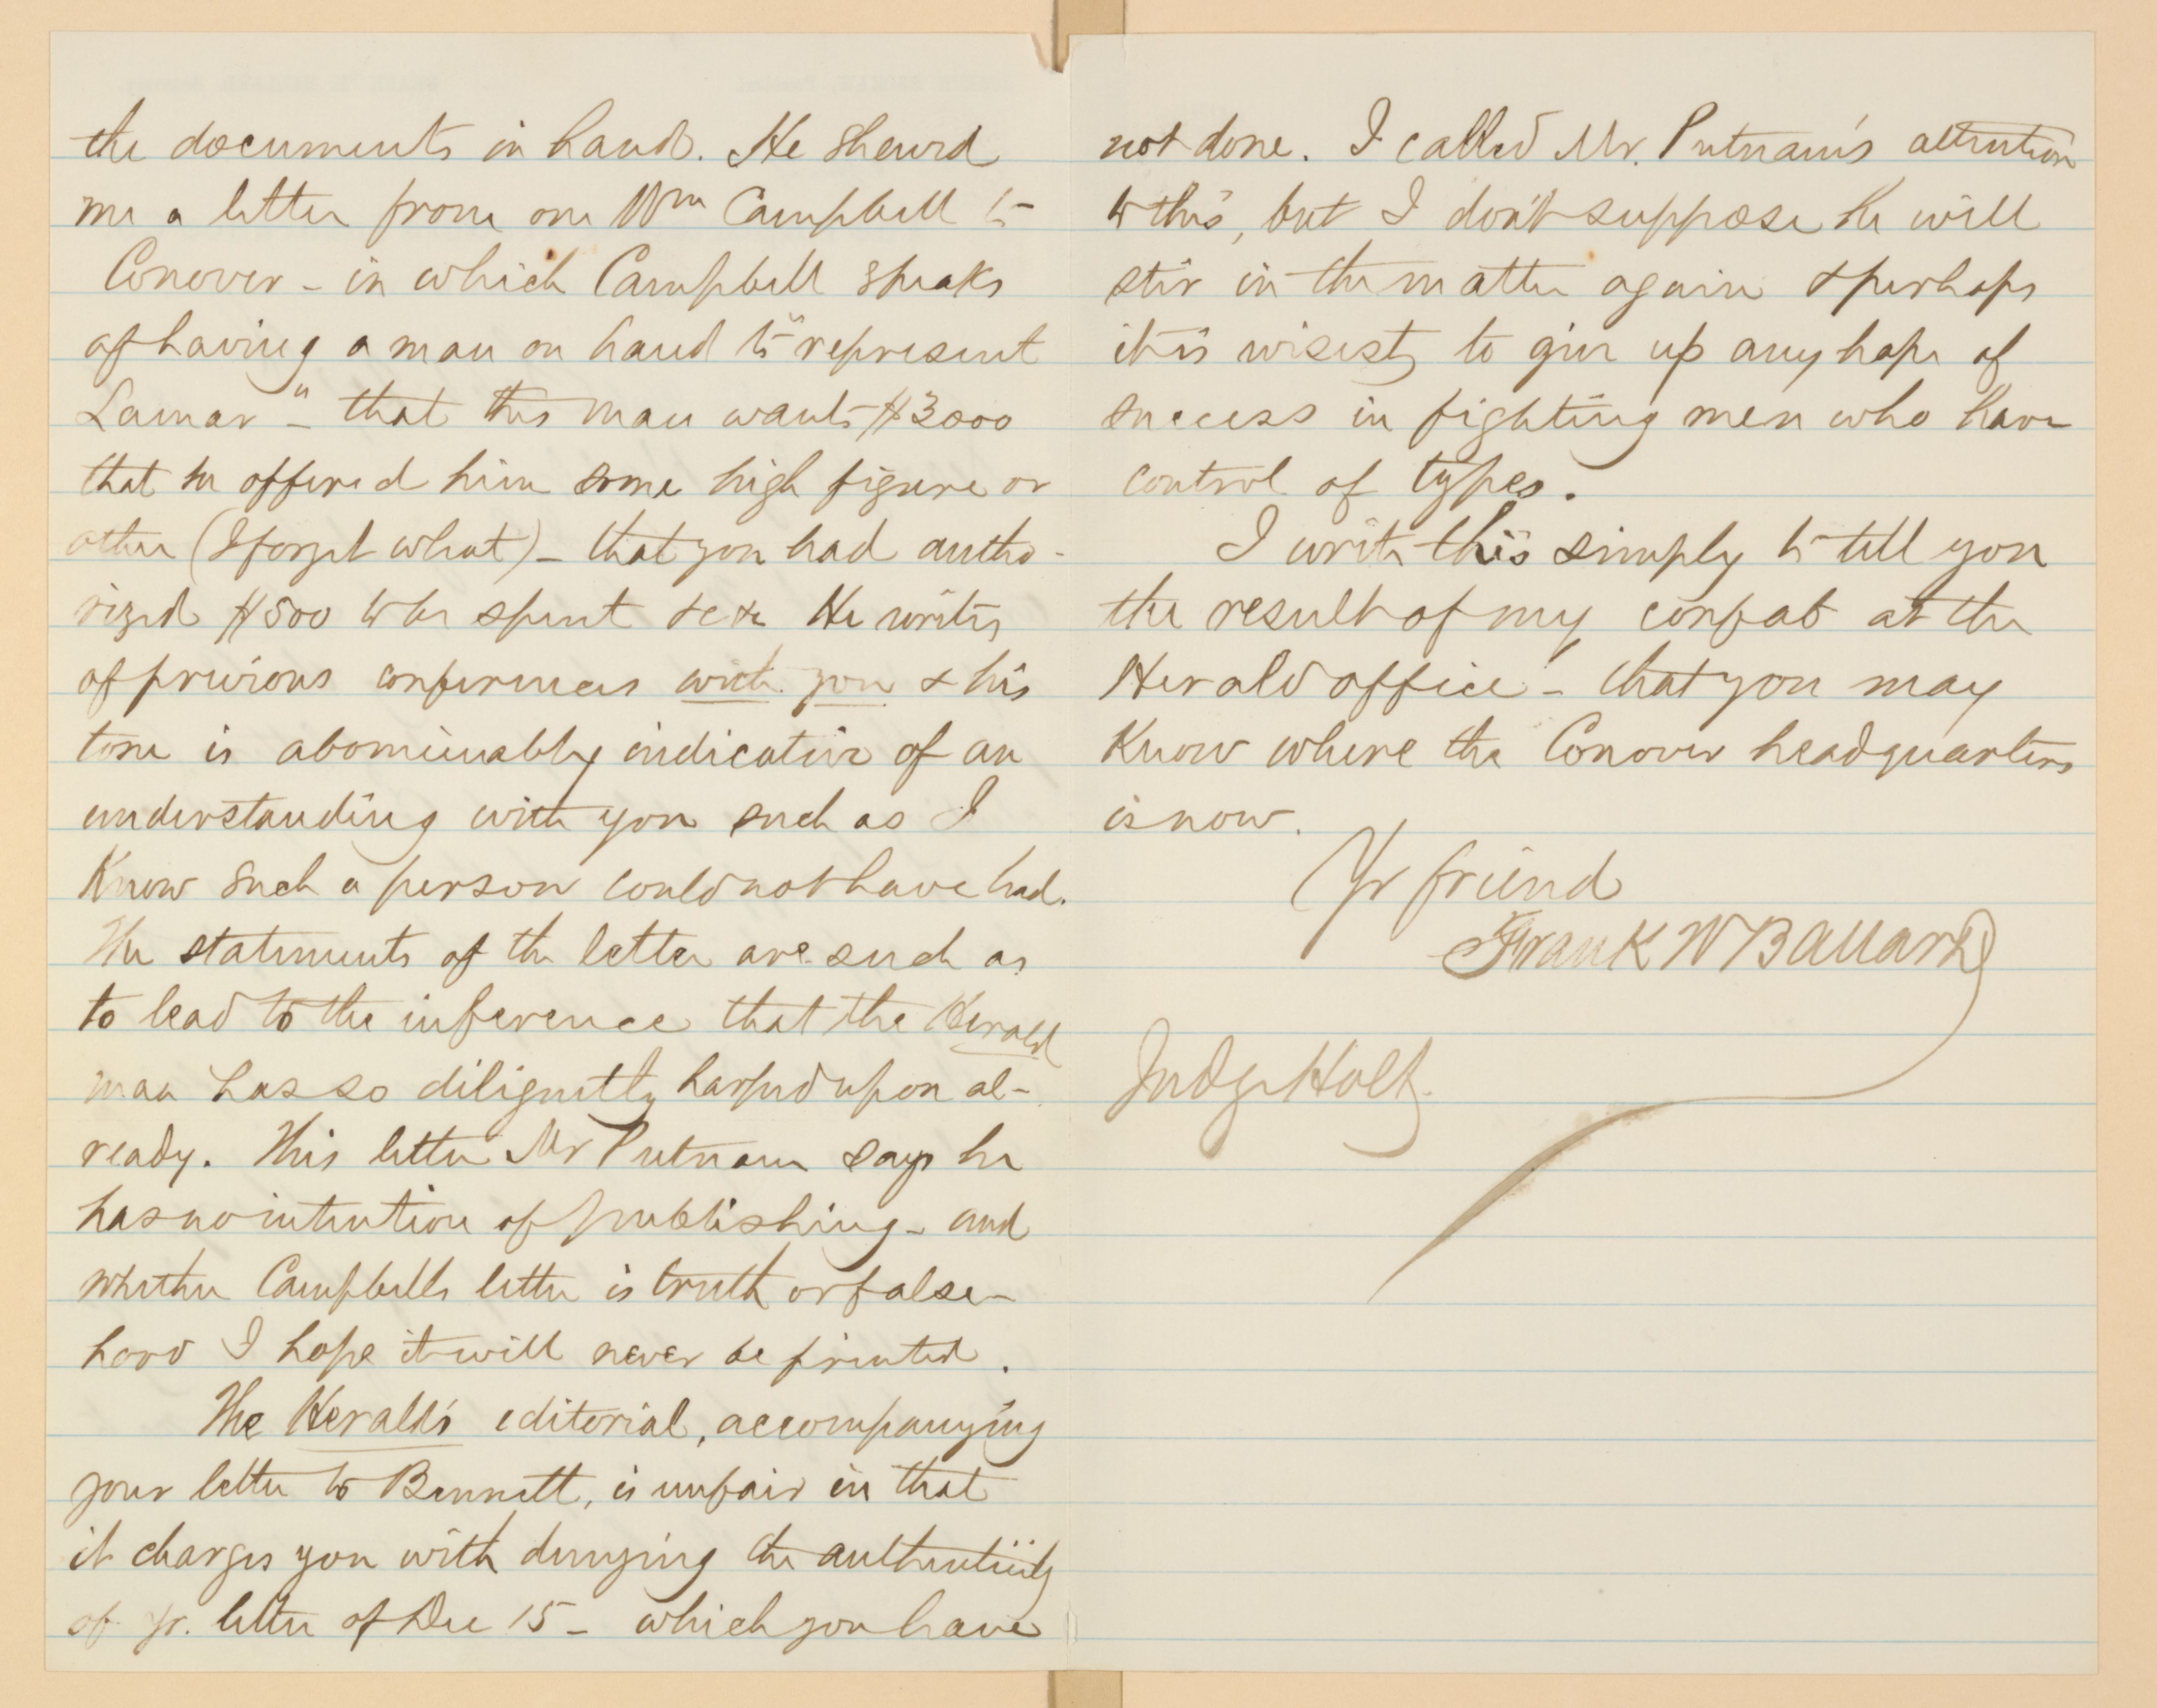 the documents in hand. He shewed
me a letter from one Wm Campbell to
Conover - in which Campbell speaks
of having a man on hand to "represent
Lamar" - that this man wants $3000
that he offered him some high figure or
other (I forget what) - that you had autho-
rized $500 to be spent &c &c He writes
of previous conferences with you & his
tone is abominably indicative of an
understanding with you such as I
Know such a person could not have had.
The statements of the letter are such as
to lead to the inference that the Herald
man has so diligently harped upon al-
ready. This letter Mr Putnam says he
has no intention of publishing - and
whether Campbells letter is truth or false-
hood I hope it will never be printed.
The Herald's editorial, accompanying
your letter to Bennett, is unfair in that
it charges you with denying the authenticity
of yr. letter of Dec 15 - which you have
not done. I called Mr. Putnam's attention
to this, but I don't suppose he will
stir in the matter again & perhaps
it is wisest to give up any hope of
success in fighting men who have
control of types.
I write this simply to tell you
the result of my confab at the
Herald office - that you may
Know where the Conover headquarters
is now.
Yr friend
Frank W Ballard
Judge Holt.